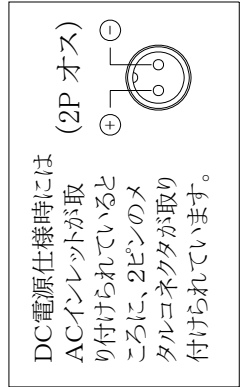 DC電源仕様時には
ACインレットが取
り付けられていると
ころに、2ピンのメ
タルコネクタが取り
付けられています。
(2P オス)
+
-